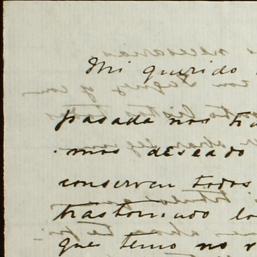 Mi querido
pasada nos
mas deseado
conserven todos
trastornado lo
que temo no